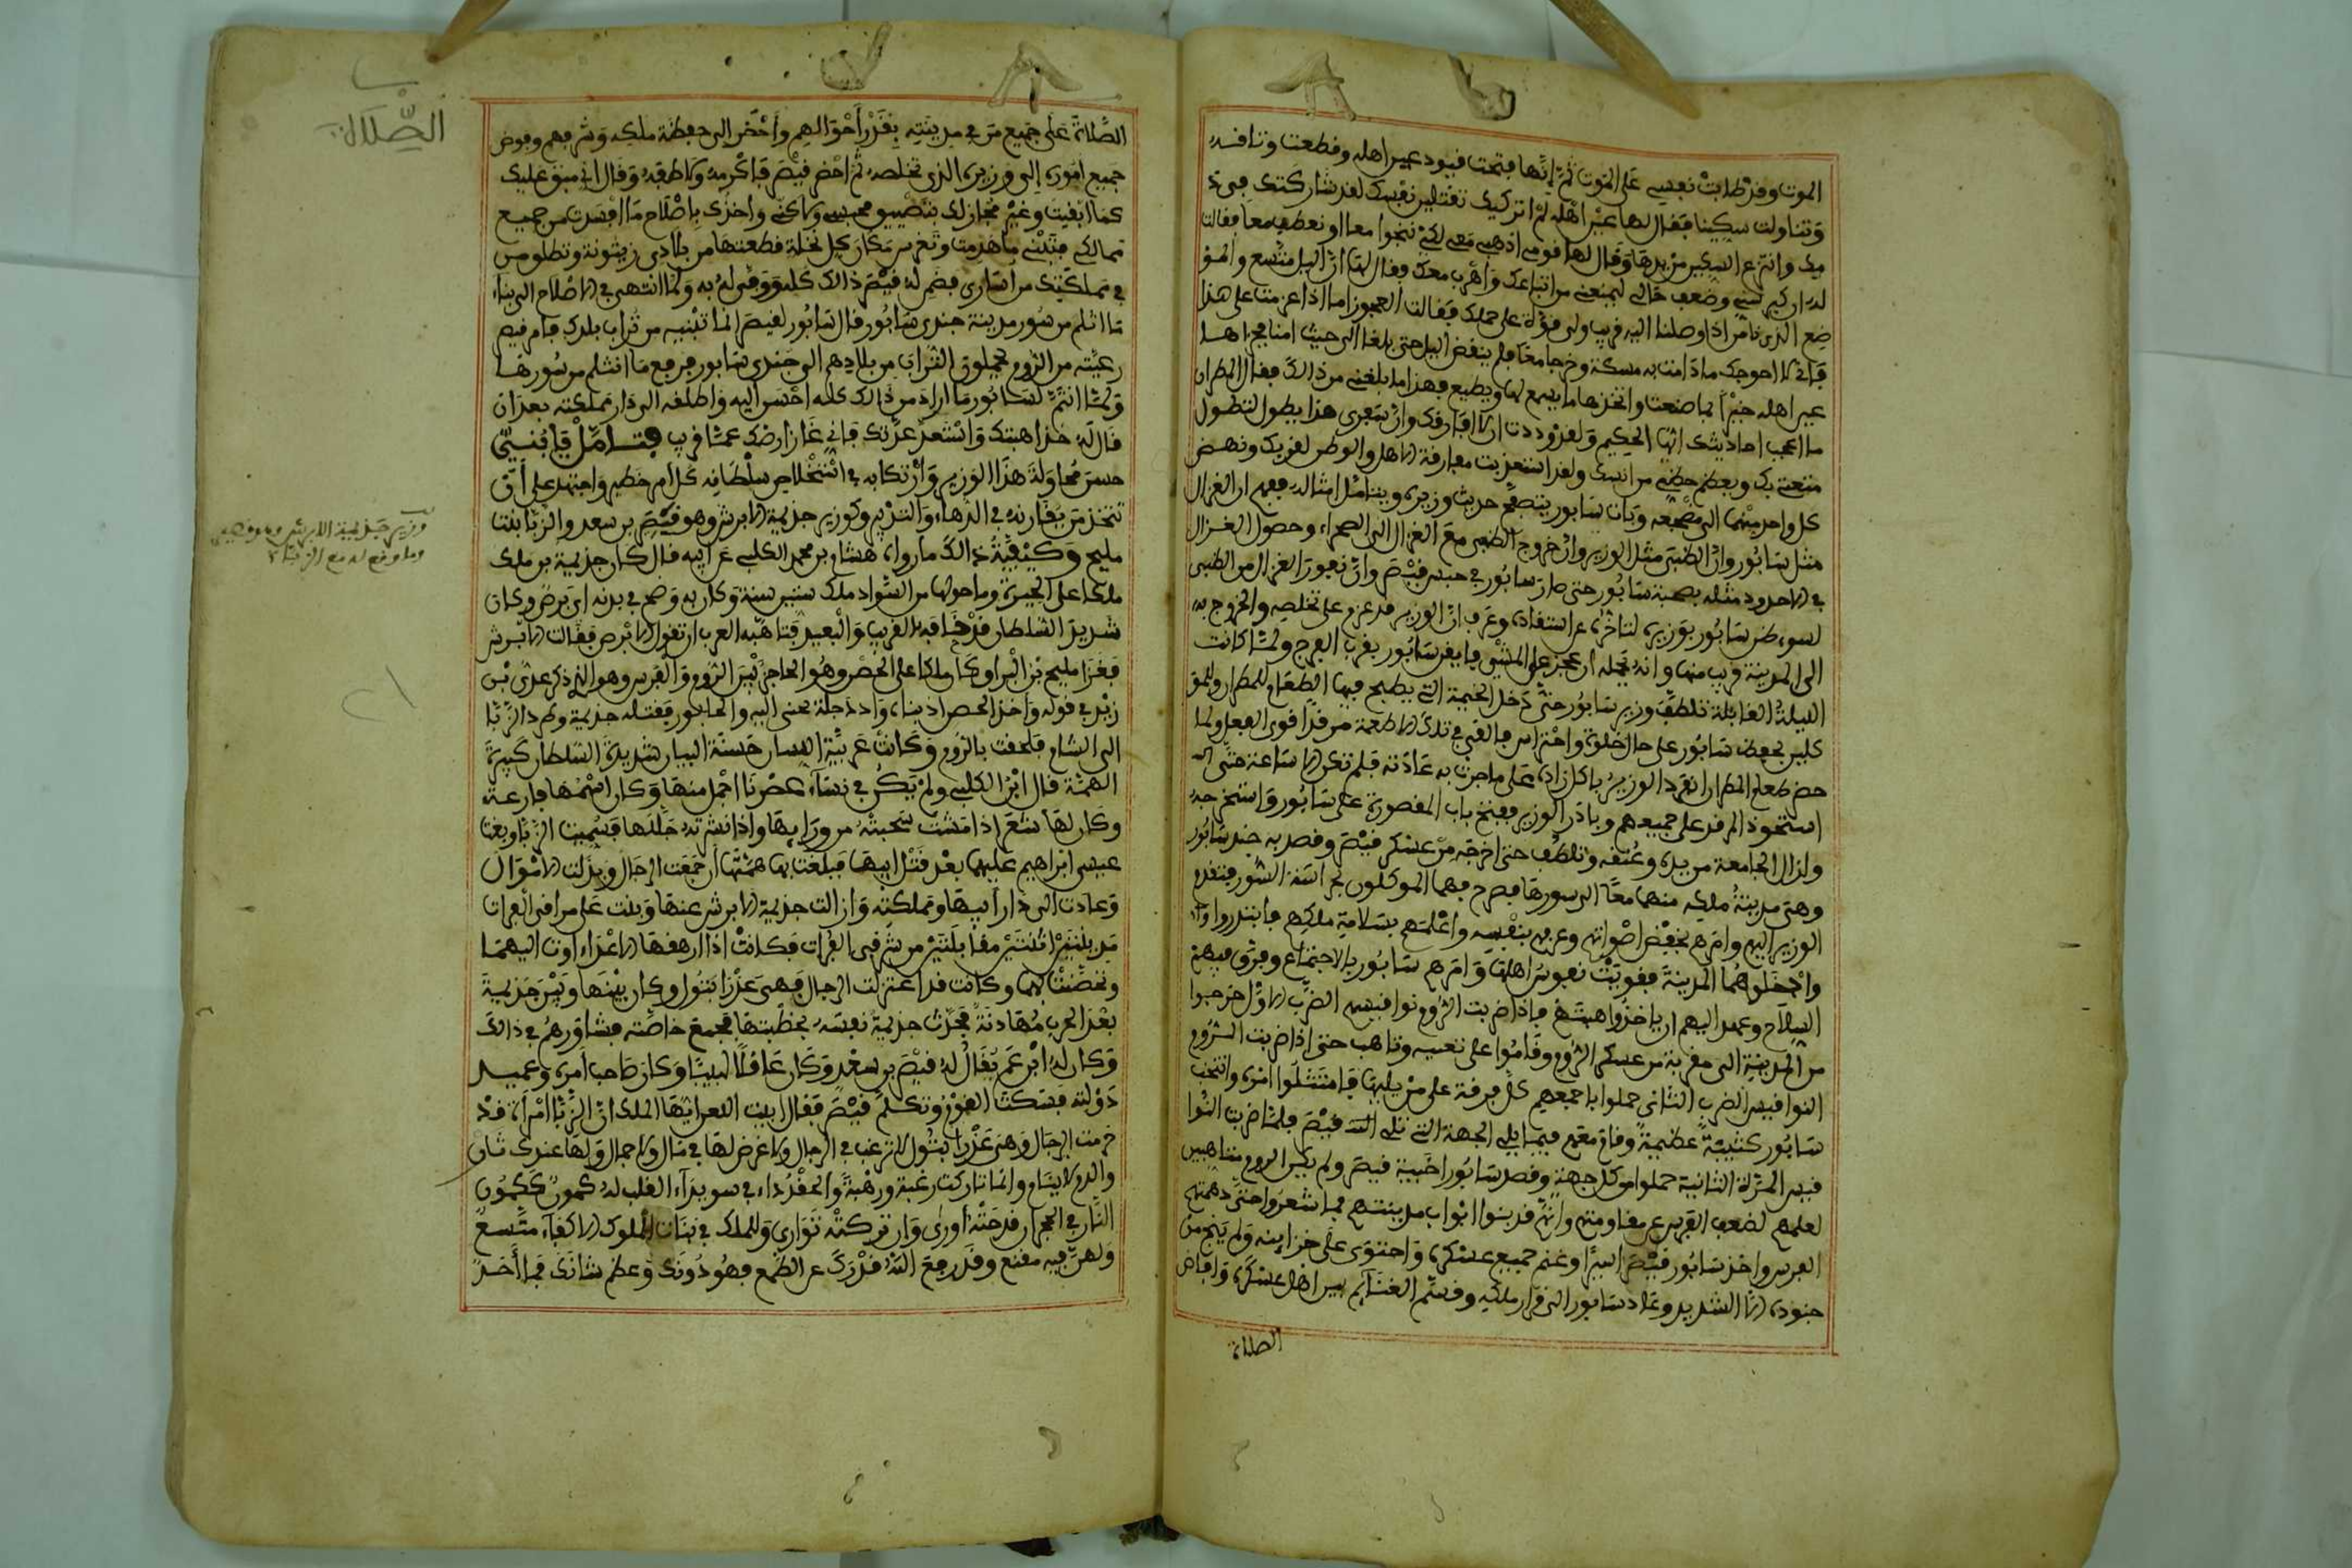 الموت وقد طابت نفسي على الموت ثم إنها فتحت قيود عين اهله وقطعت وثاقه
وتناولت سكينا فقال لها عين أهله لم اتركك تقتلين نفسك لقد شاركتك في
يدي وانتزع السكين من يدها وقال لها قومي اذهبي معي لكي ننجوا معا او نعطب معا فقالت
له ان كبر سني وضعف حالي ليمنعني من اتباعك واهرب معك فقال لها ان اليل متسع والموـ
ضع الذي نامن اذا وصلنا اليه قريب ولي قوة على حملك فقالت العجوز اما اذا عزمت على هذا
فاني لا احوجك ما دامت به مسكة وخرجا معا فلم ينقض اليل حتى بلغا الى حيث امنا فجزا هـا
عين اهله خيرا بما صنعت واتخذها اما يسمع لها ويطيع فهذا ما بلغني من ذالك فقال المطران
ما اعجب احاديثك ايها الحكيم ولقد وددت ان لا افارقك وان سفري هذا يطول لتطول
متعتي بك ويعظم حظي من انسك ولقد استعذبت مفارقة الاهل والوطن لقربك ونهض
كل واحد منهما الى مضجعه وبات سابور يتصفح حديث وزيره ويتامل امثاله ففهم ان الغزال
مثل سابور وان الظبي مثل الوزير وان خروج الظبي مع الغزال الى الصحراء وحصول الغـزال
في الاخدود مثله بصحبة سابور حتى صار سابور في حبس قيصر وان نفور الغزال من الظبي
لسوء ظن سابور بوزيره لتاخره عن استنقاذه وعرف ان الوزير قد عزم على تخلصه والخروج به
الى المدينة قريب منها وانه يحمله ان عجز عن المشي فايقن سابور بقرب الفرج ولما كانت
الليلة القابلة تلطف وزير سابور حتى دخل الخيمة التي يطبخ فيها الطعام للمطران وللموـ
كلين بحفظ سابور على حال خلوة واحتراس فالقى في تلك الاطعمة مرقدا قوي الفعل ولما
حضر طعام المطران انفرد الوزير باكل زاده على ما جرت به عادته فلم تكن الا ساعة حتى
استحوذ المرقد على جميعهم وبادر الوزير ففتح باب المقصورة على سابور واستخرجه
وازال الجامعة من يده وعنقه وتلطف حتى اخرجه من عسكر قيصر وقصد به جند سابور
وهي مدينة ملكه منهما معا الى سورها فصرح بهما الموكلون بحراسة السور فتقدم
الوزير اليهم وامرهم بخفض اصواتهم وعرفهم بنفسه واعلمهم بسلامة ملكهم فابتدروا
وادخلوهما المدينة فقويت نفوس اهلها وامرهم سابور بالاجتماع وفرق فيهم
السلاح وعهد اليهم ان ياخذوا اهبتهم فاذا ضربت الروم نواقيسهم الضرب الاول خرجوا
من المدينة الى مقربة من عسكر الروم وقاموا على تعبية وتاهب حتى اذا ضربت الـروم
النواقيس الضرب الثاني حملوا باجمعهم كل فرقة على من يليها فامتثلوا امره وانتخب
سابور كتيبة عظيمة وقام معهم فيما يلي الجهة التي تلي قيصر فلما ضربت النوا
قيس المرة الثانية حملوا من كل جهة وقصد سابور اخبية قيصر ولم يكن الروم متاهبين
لعلمهم بضعف الفرس عن مقاومتهم وانهم قد سدوا ابواب مدينتهم فما شعروا حتى دهمتهم
الفرس واخذ سابور قيصر اسيرا وغنم جميع عسكره واحتوى على خزاينه ولم ينج من
جنوده الا الشريد وعاد سابور الى قرار ملكه وقسم الغنائم بين اهل عسكره وافاض
الصلاة
الصلاة على جميع من في مدينته بقدر أحوالهم وأحضر الى حفظة ملكه وشرفهم وفوض
جميع اموره إلى وزيره الذي تخلصه ثم احضر قيصر فاكرمه ولاطفه وقال اني مبق عليك
كما ابقيت وغير مجازك بتضييق محبسي ولاكني واخذك باصلاح ما افسدت من جميـع
ممالكي فتبني ما هدمت وتغرس مكان كل نخلة قطعتها من بلادي زيتونة وتطلق مـن
في مملكتك من اسارى فضمن له قيصر ذالك كله ووفى له به ولما انتهى في الاصلاح الى بناء
ما انثلم من سور مدينة جندي سابور قال سابور لقيصر انما تبنيه من تراب بلدك فامر قيصر
رعيته من الروم بحملون التراب من بلادهم الى جندي سابور فرفع ما انثلم من سورهـا
ولما انتم لسابور ما اراد من ذالك كله احسن اليه واطلقه الى دار مملكته بعد ان
قال له خذ اهبتك واستعد عدتك فاني غاز ارضك عما قريب فتامل يابني
حسن محاولة هذا الوزير وارتكابه في استخلاص سلطانه كل امر خطير واجتهد على ان
تتخذ من يقاربه في الدهاء والتدبير كوزير جذيمة الابرش وهو قيصر بن سعد والزبا بنت
مليح وكيفية ذالك ما رواه هشام بن محمد الكلبي عن ابيه قال كان جذيمة بن ملك
ملكا على الحيرة وما حولها من السواد ملك ستين سنة وكان به وضح في بدنه اي برص وكان
شديد السلطان قد خافه القريب والبعيد فتاهبه العرب ان تقول الابرص فقالت الابـرش
فغزا مليح بن البرا وكان ملكا على الحضر وهو الحاجز بين الروم والفرس وهو الذي ذكر عدي بـن
زيد في قوله واخو الحضر اذ بناه واذ دجلة تجبى اليه والخابور فقتله جذيمة وطرد الزبا
الى الشام فلحقت بالروم وكانت عربية اللسان حسنة البيان شديدة السلطان كبيرة
الهمة قال ابن الكلبي ولم يكن في نساء عصرنا اجمل منها وكان اسمها فارعـة
وكان لها شعر اذا مشت سحبته من ورايها واذا نشرته جللها فسميت الزبا وبعث
عيسى ابن مريم عليهما بعد قتل ابيها فبلغت بها همتها أن جمعت الرجال وبذلت الاموال
وعادت الى دار ابيها ومملكته وازالت جذيمة الابرش عنها وبنت على مرافى الفرات
مدينتين اثنتين متقابلتين من شرقي الفرات فكانت اذا ارهقها الاعداء اوت اليهمـا
وتحصنت بهما وكانت قد اعتزلت الرجال فهي عذرا بتول وكان بينها وبين جذيمة
بعد الحرب مهادنة فحدثت جذيمة نفسه بخطبتها فجمع خاصته فشاورهم في ذالك
وكان له ابن عم يقال له قيصر بن سعد وكان عاقلا لبيبا وكان صاحب امره وعميـد
دولته فسكت القوم وتكلم قيصر فقال ابيت اللعن ايها الملك ان الزبا امرأة قـد
حرمت الرجال فهي عذرا بتول لا ترغب في الرجال ولا غرض لها في مال ولا جمال ولها عندك ثـار
والدم لا ينام وانما تاركتك رغبة ورهبة والحقد داء في سويداء القلب له كمون ككمون
النار في الحجر ان قدحته اورى وان تركته توارى وللملك في بنات الملوك الاكفاء متسع
ولهن فيه مقنع وقد رفع الله قدرك عن الطمع فهو دونك وعظم شانك فما أحـد
الصلات
وزير جذيمة الابرش وهو قصير
وما وقع له مع الزباء